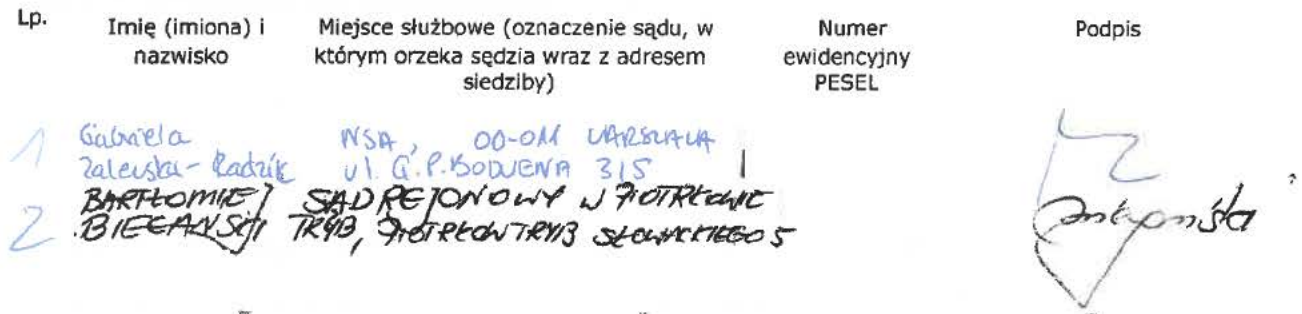 Lp. Imię (imiona) i nazwisko Miejsce służbowe (oznaczenie sądu, w którym orzeka sędzia wraz z adresem siedziby) Numer ewidencyjny PESEL Podpis
1 Gabriela NSA, 00-011 WARSZAWA
Zalewska-Radzik ul. G.P. BODUENA 3/5
BARTŁOMIEJ SĄD REJONOWY W PIOTRKOWIE
2 BIEGAŃSKI TRYB, PIOTRKÓW TRYB SŁOWACKIEGO 5